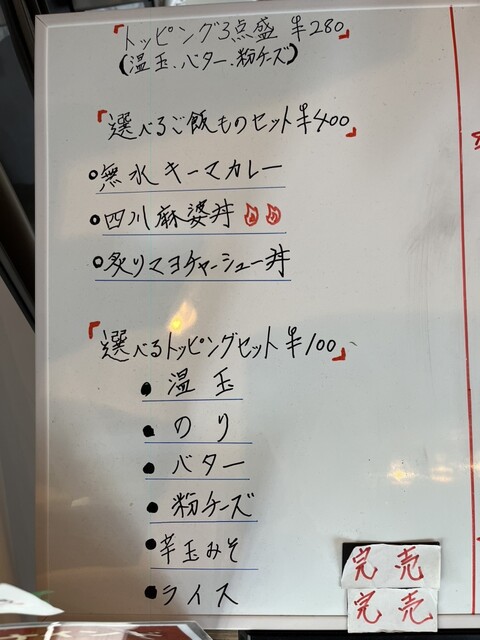 「トッピング3点盛 ¥280」
(温玉、バター、粉チーズ)
「選べるご飯ものセット¥400」
○無水キーマカレー
○四川麻婆丼
○炙りマヨチャーシュー丼
「選べるトッピングセット¥100」
●温玉
●のり
●バター
●粉チーズ
●辛玉みそ
●ライス
完売
完売